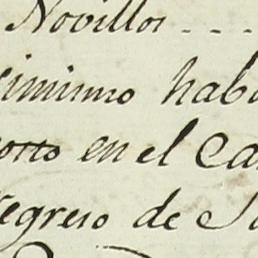 Novillos ----
simismo hab
en el Ca
regreso de S